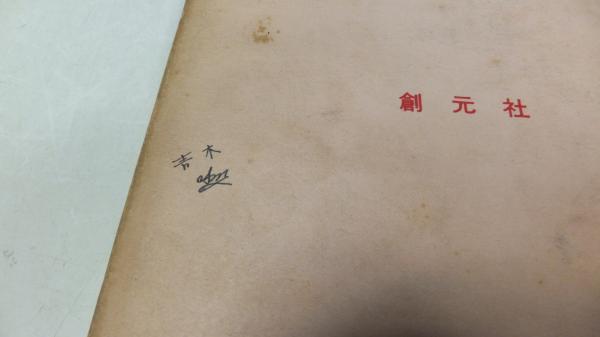 創元社
吉木